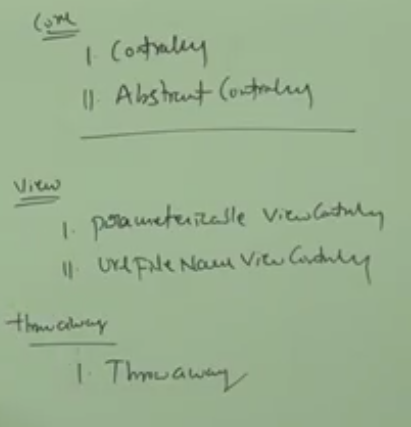 Core
I. Controller
II. Abstract Controller
View
I. parameterizable ViewController
II. UrlFileName ViewController
throwaway
I. Throwaway